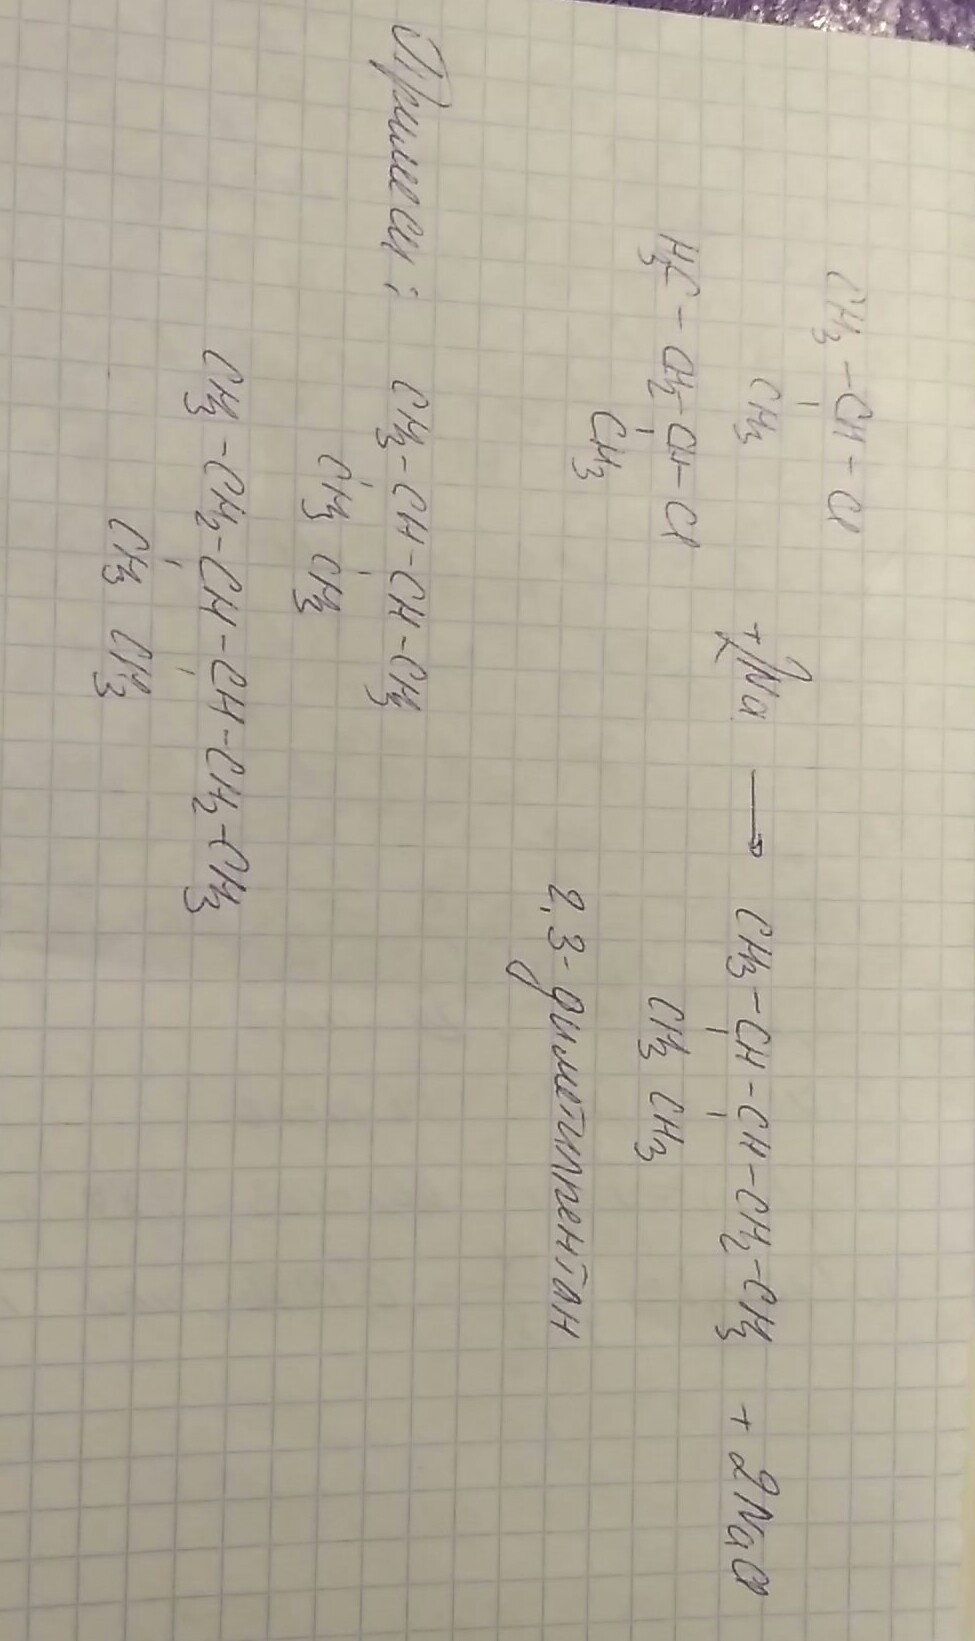 CH3 - CH - Cl
CH3
+2Na → CH3 - CH - CH - CH2 - CH3 + 2NaCl
H3C - CH2 - CH - Cl
CH3 CH3
CH3
2,3-диметилпентан
Примеси: CH3 - CH - CH - CH3
CH3 CH3
CH3 - CH2 - CH - CH - CH2 - CH3
CH3 CH3